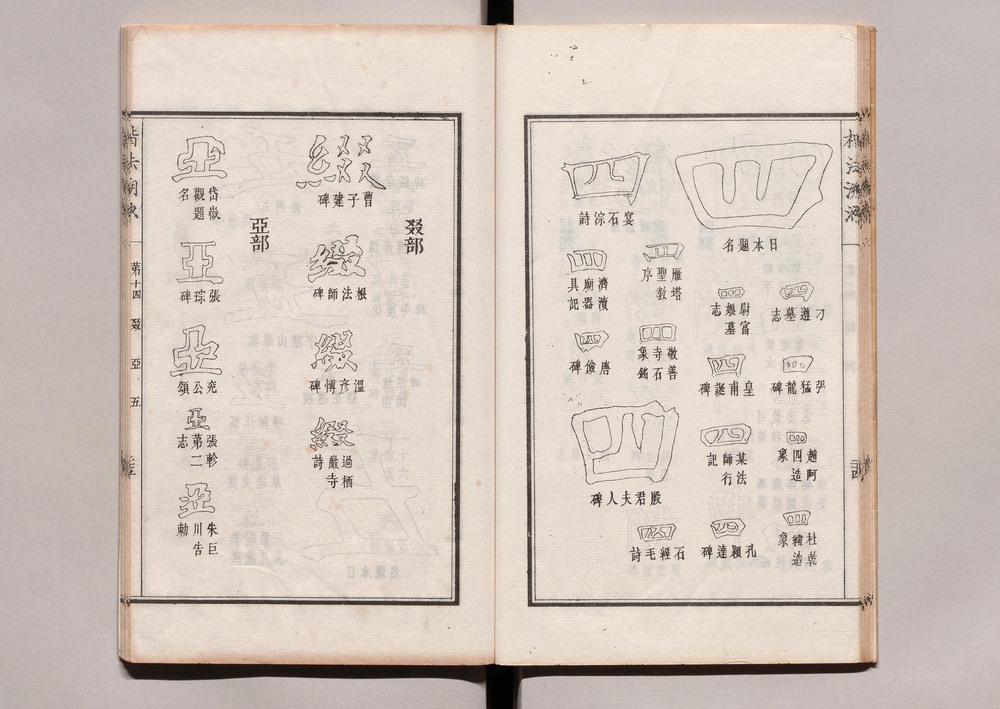 四
日本題名
四
刁遵墓志
四
張猛龍碑
四
趙阿
四造
象
四
杜乾
緒造
象
四
尉富
娘墓
志
四
皇甫誕碑
四
某法
師行
記
四
孔穎達碑
四
雁塔
聖教
序
四
敬善
寺石
象銘
四
殷君夫人碑
四
石經毛詩
四
宴石淙詩
四
濟瀆
廟器
具記
四
唐儉碑
叕部
綴
曹子建碑
綴
根法師碑
綴
溫彥博碑
綴
過栖
嚴寺
詩
亞部
亞
岱嶽
觀題
名
亞
張琮碑
亞
兖公頌
亞
張軫
第二
志
亞
朱巨
川告
勅
楷法溯源
第十四
叕
亞
五